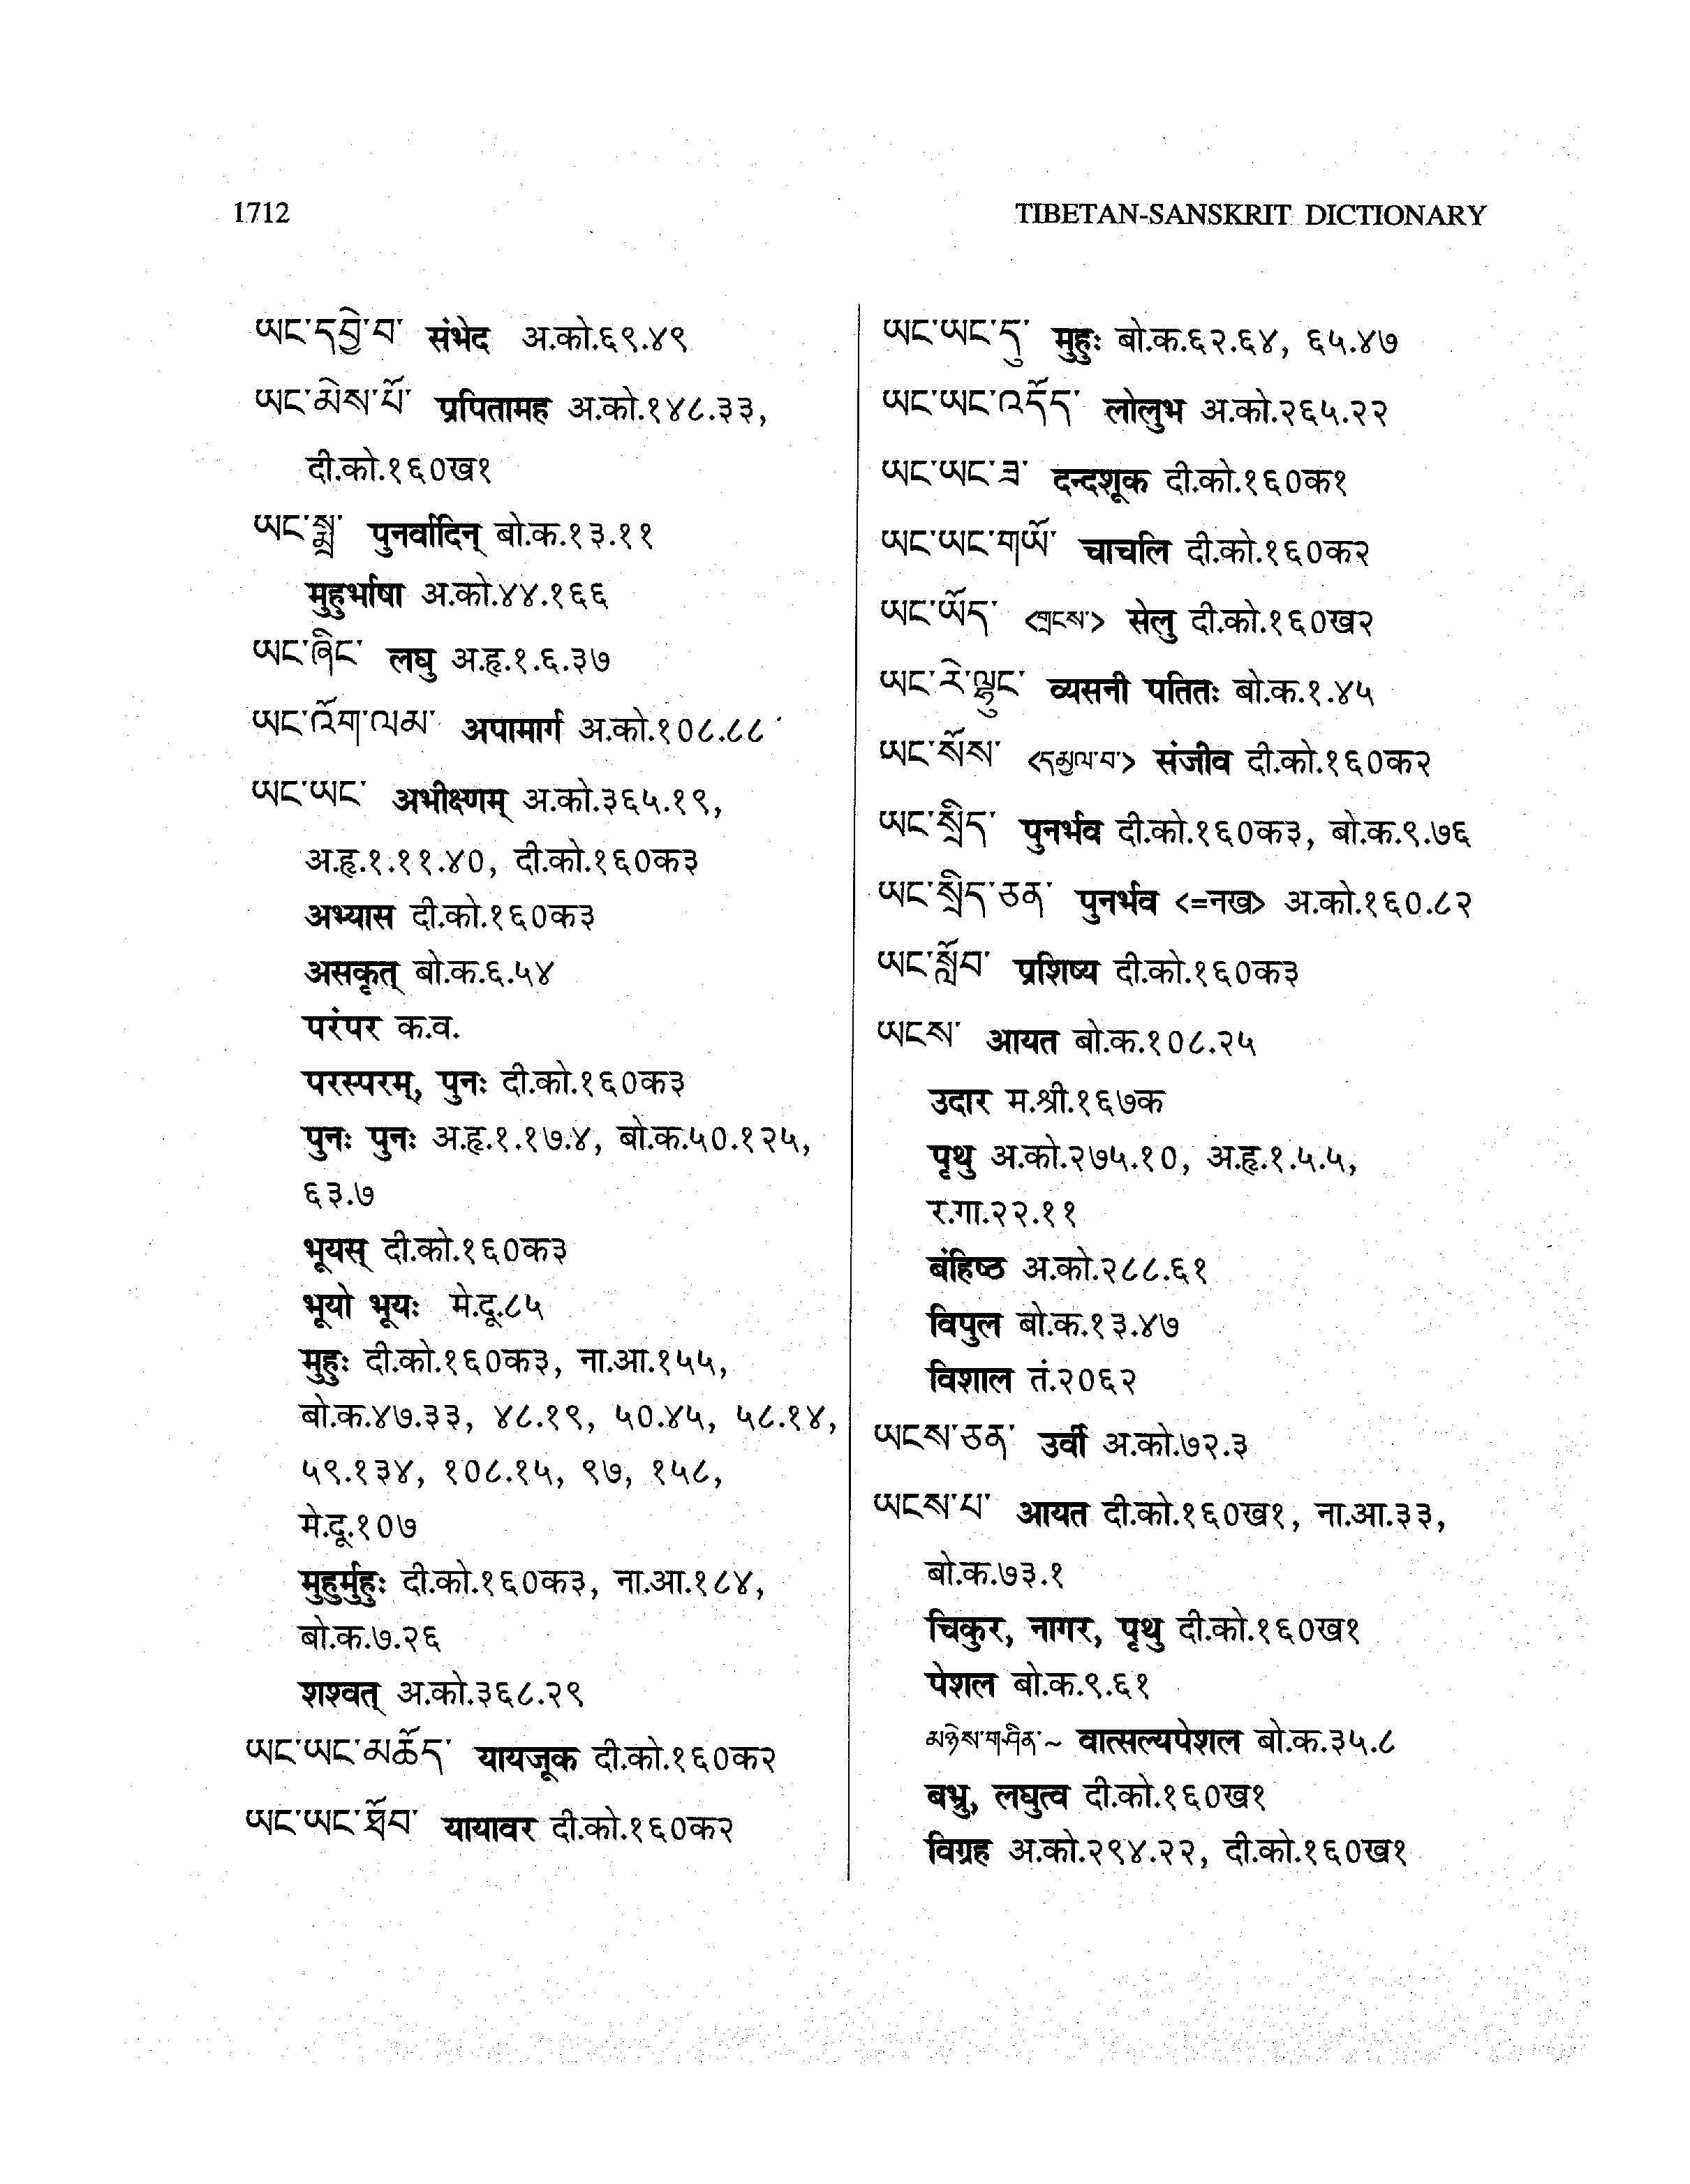 1712
TIBETAN-SANSKRIT DICTIONARY
ཡང་དབྱེ་བ་ संभेद अ.को.६९.४९
ཡང་མེས་པོ་ प्रपितामह अ.को.१४८.३३,
दी.को.१६०ख१
ཡང་སྨྲ་ पुनर्वादिन् बो.क.१३.११
मुहुर्भाषा अ.को.४४.१६६
ཡང་ཞིང་ लघु अ.हृ.१.६.३७
ཡང་འོག་ལམ་ अपामार्ग अ.को.१०८.८८
ཡང་ཡང་ अभीक्ष्णम् अ.को.३६५.१९,
अ.हृ.१.११.४०, दी.को.१६०क३
अभ्यास दी.को.१६०क३
असकृत् बो.क.६.५४
परंपर क.व.
परस्परम्, पुनः दी.को.१६०क३
पुनः पुनः अ.हृ.१.१७.४, बो.क.५०.१२५,
६३.७
भूयस् दी.को.१६०क३
भूयो भूयः मे.दू.८५
मुहुः दी.को.१६०क३, ना.आ.१५५,
बो.क.४७.३३, ४८.१९, ५०.४५, ५८.१४,
५९.१३४, १०८.१५, ९७, १५८,
मे.दू.१०७
मुहुर्मुहुः दी.को.१६०क३, ना.आ.१८४,
बो.क.७.२६
शश्वत् अ.को.३६८.२९
ཡང་ཡང་མཆོད་ यायजूक दी.को.१६०क२
ཡང་ཡང་ཐོབ་ यायावर दी.को.१६०क२
ཡང་ཡང་དུ་ मुहुः बो.क.६२.६४, ६५.४७
ཡང་ཡང་འདོད་ लोलुभ अ.को.२६५.२२
ཡང་ཡང་ཟ་ दन्दशूक दी.को.१६०क१
ཡང་ཡང་གཡོ་ चाचलि दी.को.१६०क२
ཡང་ཡོད་ <གྲངས་> सेलु दी.को.१६०ख२
ཡང་རེ་ལྟུང་ व्यसनी पतितः बो.क.१.४५
ཡང་སོས་ <དམྱལ་བ་> संजीव दी.को.१६०क२
ཡང་སྲིད་ पुनर्भव दी.को.१६०क३, बो.क.९.७६
ཡང་སྲིད་ཅན་ पुनर्भव <=नख> अ.को.१६०.८२
ཡང་སློབ་ प्रशिष्य दी.को.१६०क३
ཡངས་ आयत बो.क.१०८.२५
उदार म.श्री.१६७क
पृथु अ.को.२७५.१०, अ.हृ.१.५.५,
र.गा.२२.११
बंहिष्ठ अ.को.२८८.६१
विपुल बो.क.१३.४७
विशाल तं.२०६२
ཡངས་ཅན་ उर्वी अ.को.७२.३
ཡངས་པ་ आयत दी.को.१६०ख१, ना.आ.३३,
बो.क.७३.१
चिकुर, नागर, पृथु दी.को.१६०ख१
पेशल बो.क.९.६१
མཉེས་གཤིན་~ वात्सल्यपेशल बो.क.३५.८
बभ्रु, लघुत्व दी.को.१६०ख१
विग्रह अ.को.२९४.२२, दी.को.१६०ख१